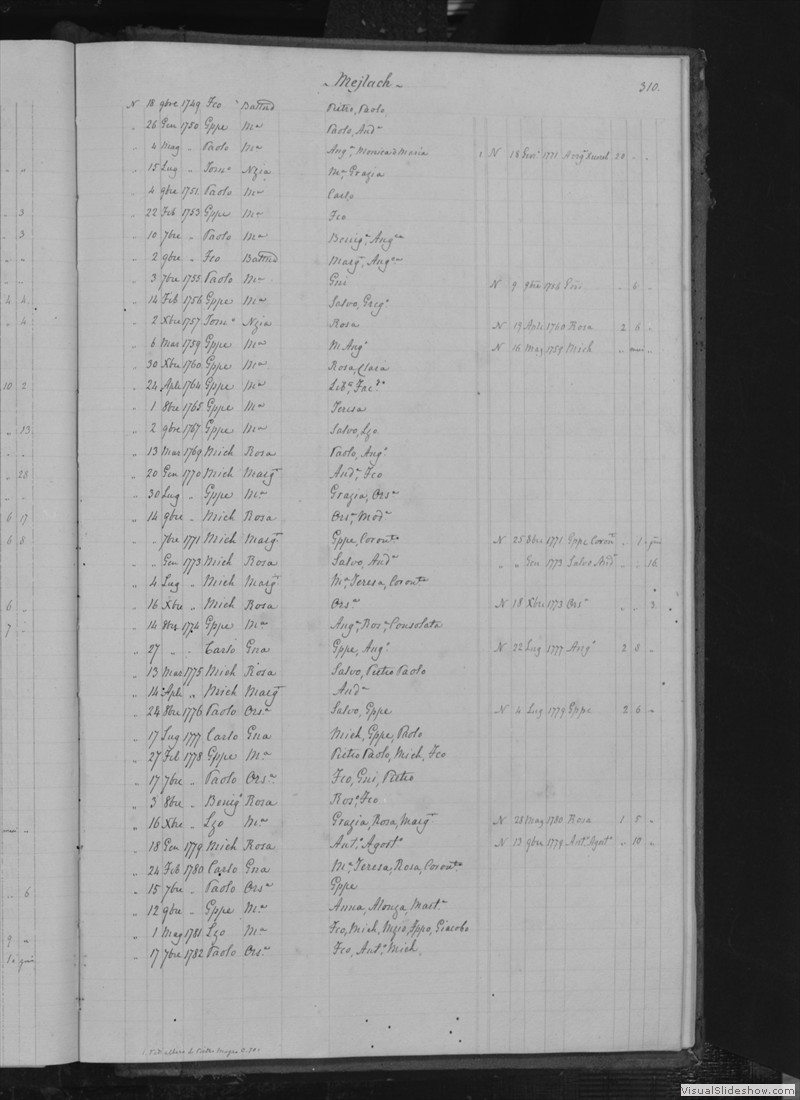 Mejlach
310.
N 18 9bre 1749 Fco Battud Pietro, Paolo,
" 26 Gen 1750 Gppe Ma Paolo, Anda
" 4 Mag " Paolo Ma Anga, Monica Maria 1 N 18 1771 20 " "
" 15 Lug " Toma Nzia Ma Grazia
" 4 9bre 1751 Paolo Ma Carlo
" 22 Feb 1753 Gppe Ma Fco
" 10 7bre " Paolo Ma Beniga, Angca
" 2 9bre " Fco Battud Margta, Angca
" 3 7bre 1755 Paolo Ma Gni N 9 9bre 1756 Gni " 6 "
" 14 Feb 1756 Gppe Ma Salvo, Gregо
" 2 Xbre 1757 Toma Nzia Rosa N 19 Aple 1760 Rosa 2 6 "
" 6 Mar 1759 Gppe Ma M Anga N 16 Mag 1759 Mich
" 30 Xbre 1760 Gppe Ma Rosa, Clara
" 24 Aple 1764 Gppe Ma
" 1 8bre 1765 Gppe Ma Teresa
" 2 9bre 1767 Gppe Ma Salvo, Lzo
" 13 Mar 1769 Mich Rosa Paolo, Ango
" 20 Gen 1770 Mich Margta Anda, Fco
" 30 Lug " Gppe Ma Grazia, Orsa
" 14 9bre " Mich Rosa Orsa, Moda
" " 7bre 1771 Mich Margta Gppe, Coronta N 25 8bre 1771 Gppe Coronta " 1
" " Gen 1773 Mich Rosa Salvo, Anda " " Gen 1773 Salvo Anda " " 16
" 4 Lug " Mich Margta Ma Teresa, Coronta
" 16 Xbre " Mich Rosa Orsa N 18 Xbre 1773 Orsa " " 3
" 14 8bre 1774 Gppe Ma Anga, Rosa, Consolata
" 27 " " Carlo Gna Gppe, Ango N 22 Lug 1777 Ango 2 8 "
" 13 Mar 1775 Mich Rosa Salvo, Pietro Paolo
" 14 Aple " Mich Margta Anda
" 24 8bre 1776 Paolo Orsa Salvo, Gppe N 4 Lug 1779 Gppe 2 6 "
" 17 Lug 1777 Carlo Gna Mich, Gppe, Paolo
" 27 Feb 1778 Gppe Ma Pietro Paolo, Mich, Fco
" 17 7bre " Paolo Orsa Fco, Gni, Pietro
" 3 8bre " Benigo Rosa Rosa, Fco
" 16 Xbre " Lzo Ma Grazia, Rosa, Margta N 28 Mag 1780 Rosa 1 5 "
" 18 Gen 1779 Mich Rosa Anto, Agosto N 13 9bre 1779 Anto, Agosto " 10 "
" 24 Feb 1780 Carlo Gna Ma Teresa, Rosa, Coronta
" 15 7bre " Paolo Orsa Gppe
" 12 9bre " Gppe Ma Anna, Alonza, Marta
" 1 Mag 1781 Lzo Ma Fco, Mich, Nzio, Fppo, Giacobo
" 17 7bre 1782 Paolo Orsa Fco, Anto, Mich,
VisualSlideshow.com